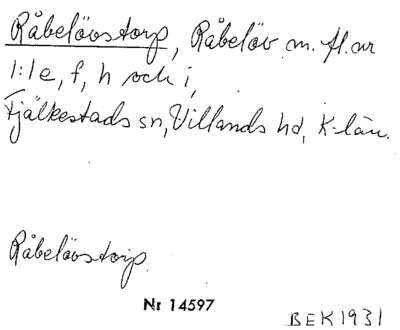 Råbelövstorp, Råbelöv m. fl. nr
1:1e, f, h och i,
Fjälkestads sn, Villands hd, K-län.
Råbelövstorp.
Nr 14597
BEK 1931